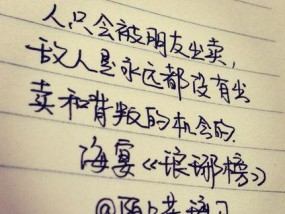 人只会被朋友出卖,
敌人是永远都没有出
卖和背叛的机会的.
海宴《琅琊榜》